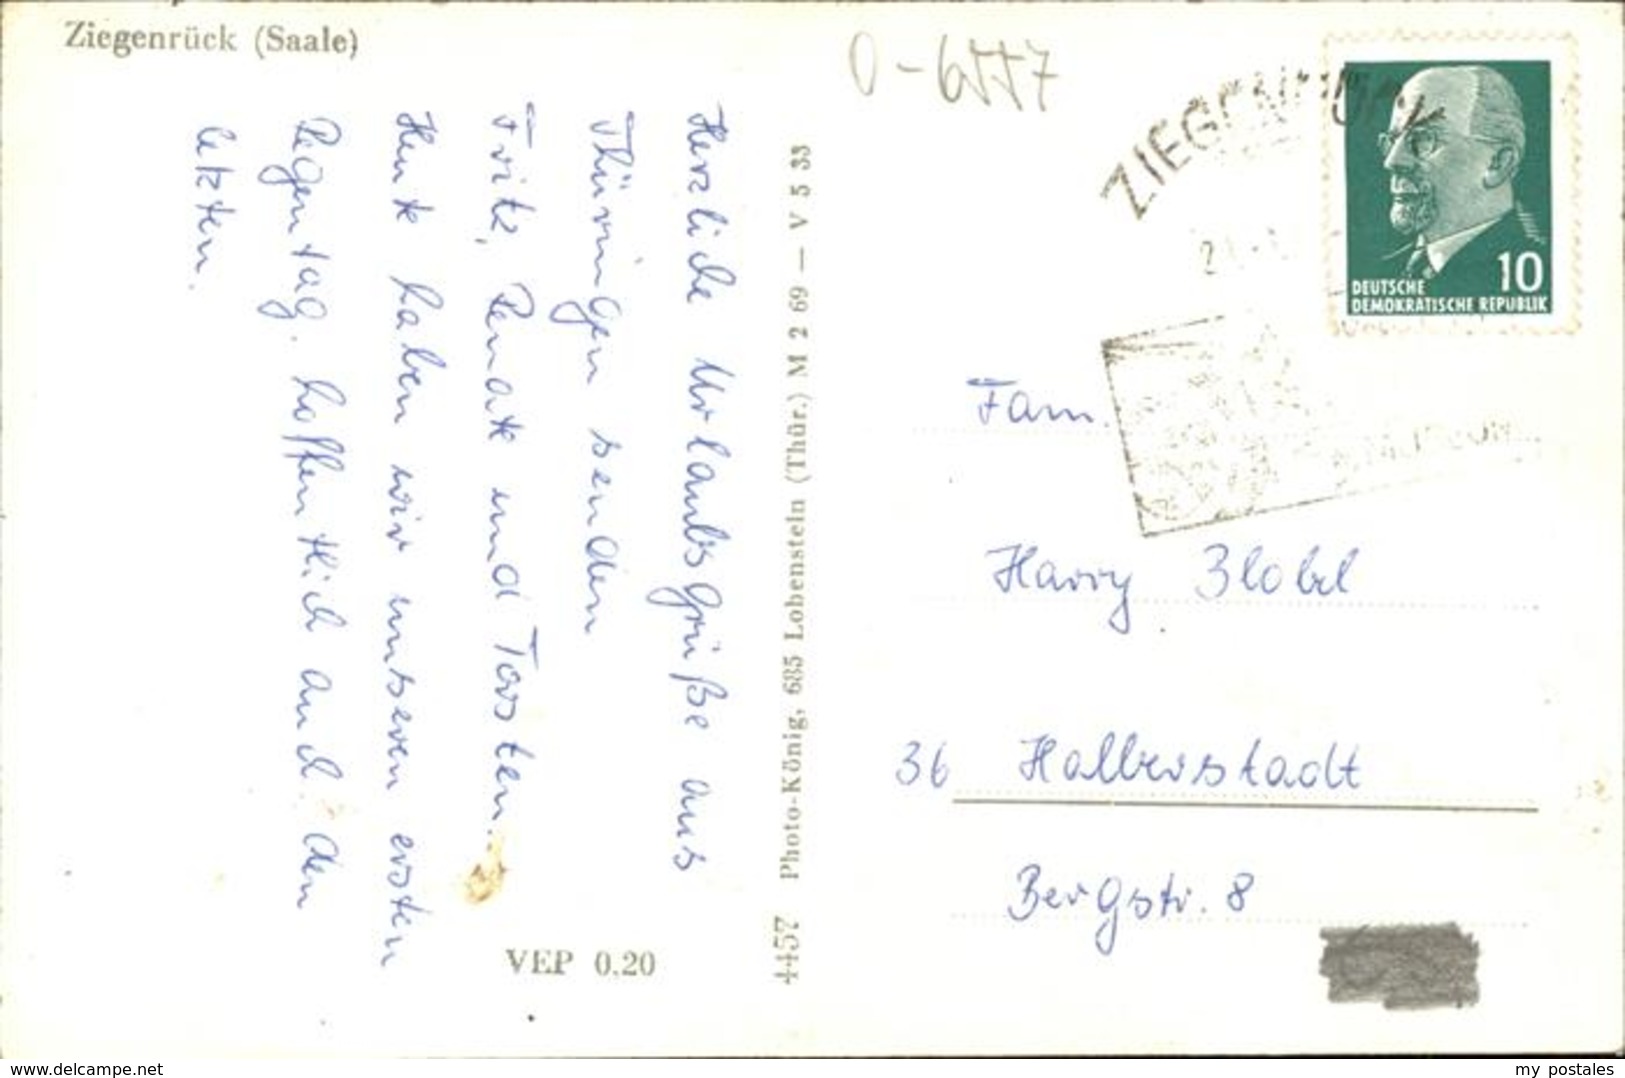 Ziegenrück (Saale)
O-6557
ZIEGENRÜCK
DEUTSCHE
DEMOKRATISCHE REPUBLIK
10
Herzliche Urlaubsgrüße aus
Thüringen senden
Fritz, Renate und Torsten.
Heute haben wir unseren ersten
Regentag. hoffentlich auch den
letzten.
VEP 0,20
4457 Photo-König, 685 Lobenstein (Thür.) M 2 69 — V 5 33
Fam.
Harry Blobel
36 Halberstadt
Bergstr. 8
www.delcampe.net
my postales